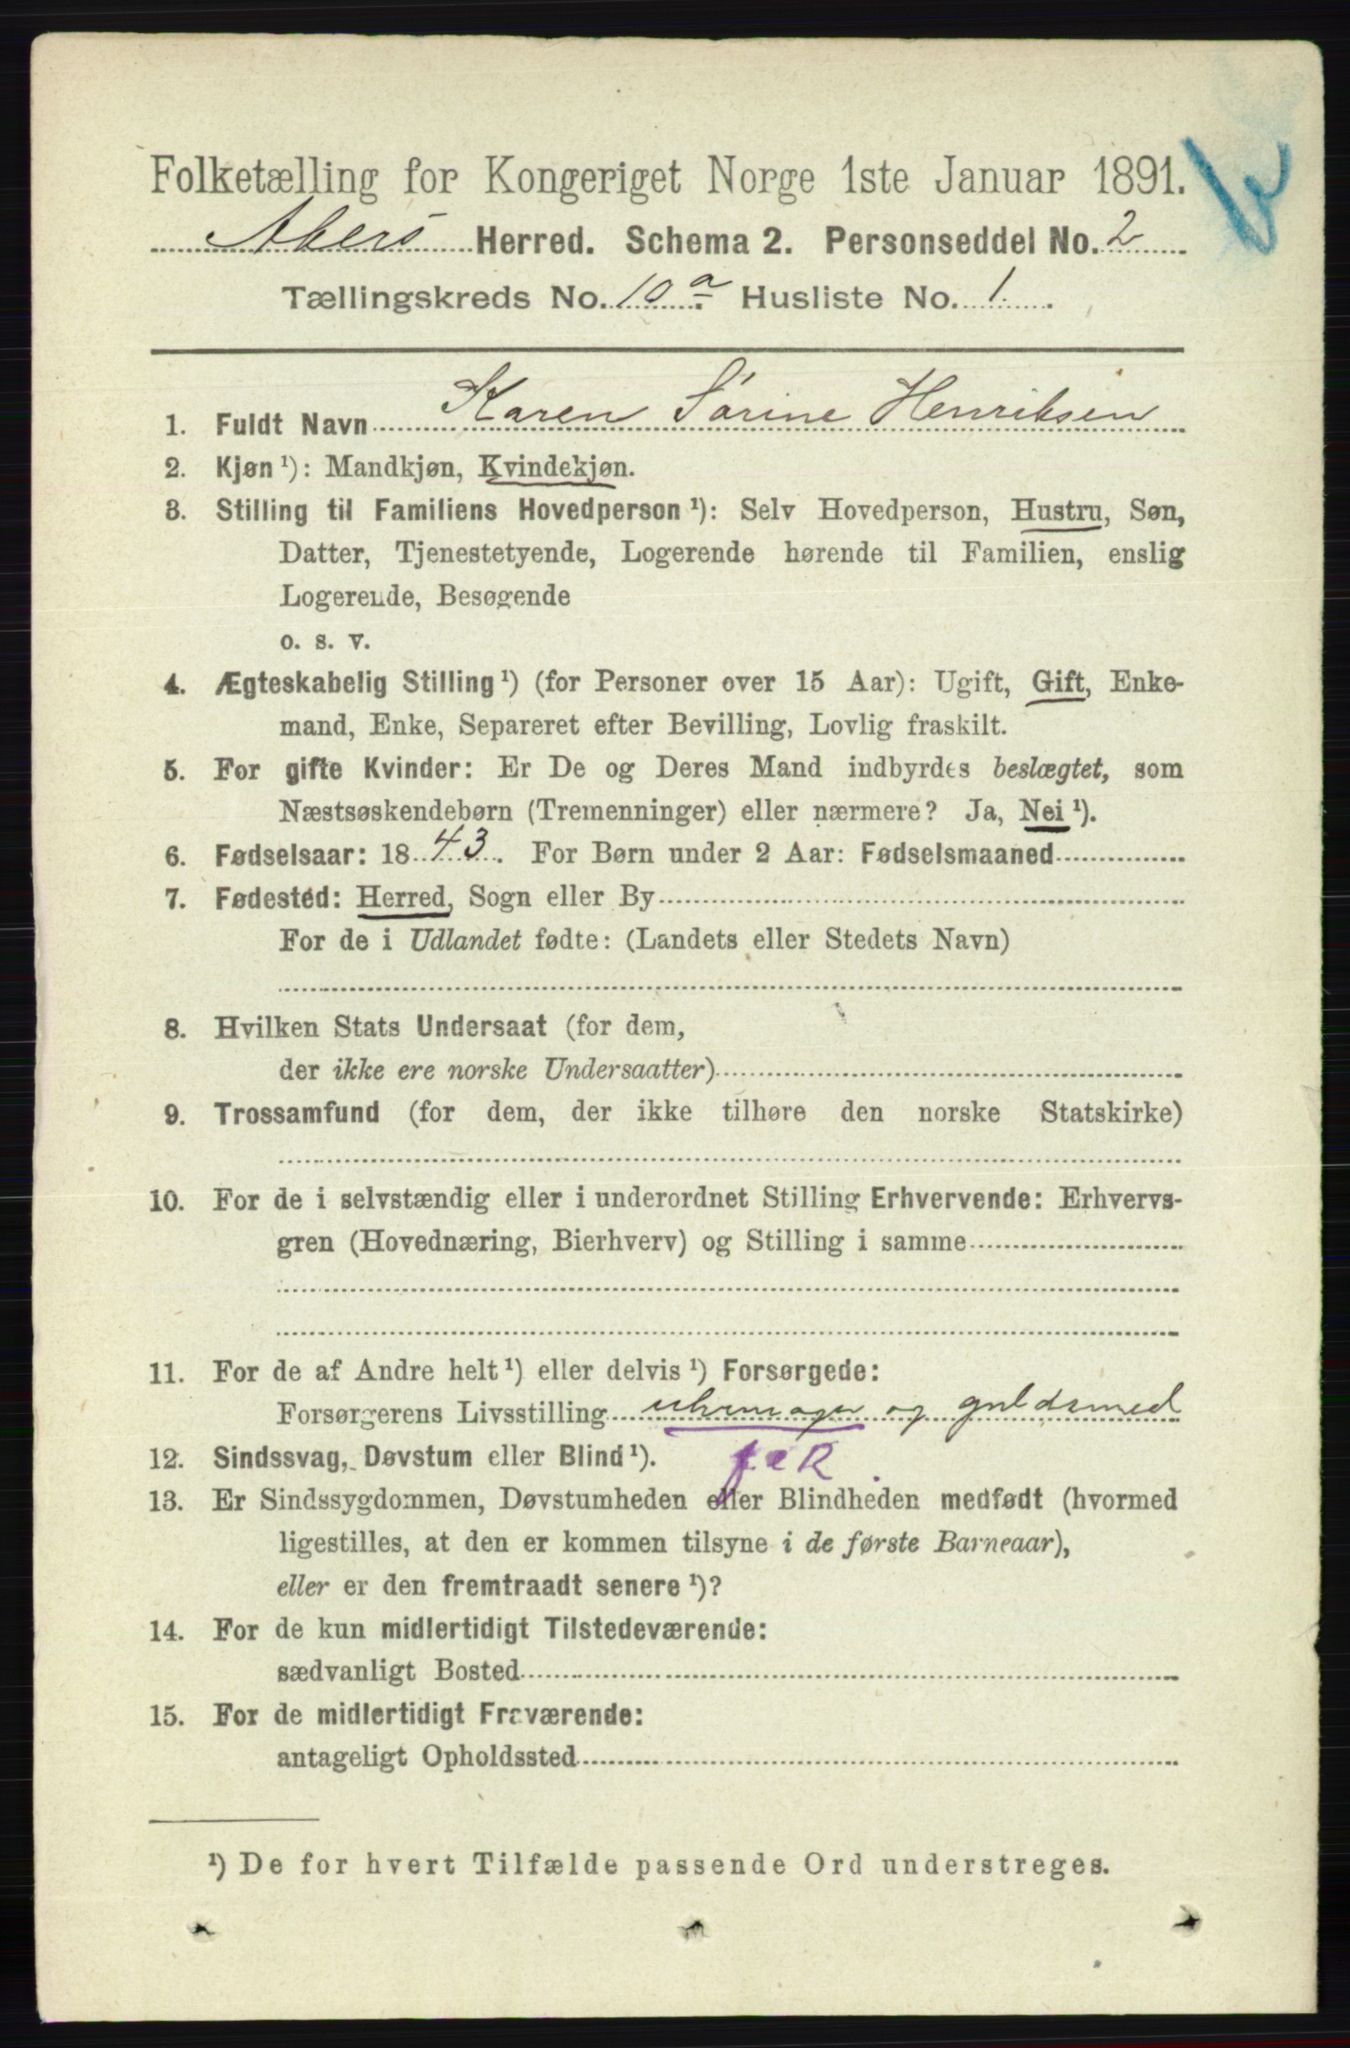 Folketælling for Kongeriget Norge 1ste Januar 1891.
Akers Herred. Schema 2. Personseddel No. 2
Tællingskreds No. 10 a Husliste No. 1
1. Fuldt Navn Karen Sørine Henriksen
2. Kjøn ¹): Mandkjøn, Kvindekjøn.
3. Stilling til Familiens Hovedperson ¹): Selv Hovedperson, Hustru, Søn,
Datter, Tjenestetyende, Logerende hørende til Familien, enslig
Logerende, Besøgende
o. s. v.
4. Ægteskabelig Stilling ¹) (for Personer over 15 Aar): Ugift, Gift, Enke-
mand, Enke, Separeret efter Bevilling, Lovlig fraskilt.
5. For gifte Kvinder: Er De og Deres Mand indbyrdes beslægtet, som
Næstsøskendebørn (Tremenninger) eller nærmere? Ja, Nei ¹).
6. Fødselsaar: 1843. For Børn under 2 Aar: Fødselsmaaned
7. Fødested: Herred, Sogn eller By
For de i Udlandet fødte: (Landets eller Stedets Navn)
8. Hvilken Stats Undersaat (for dem,
der ikke ere norske Undersaatter)
9. Trossamfund (for dem, der ikke tilhøre den norske Statskirke)
10. For de i selvstændig eller i underordnet Stilling Erhvervende: Erhvervs-
gren (Hovednæring, Bierhverv) og Stilling i samme
11. For de af Andre helt ¹) eller delvis ¹) Forsørgede:
Forsørgerens Livsstilling uhrmager og guldsmed
12. Sindssvag, Døvstum eller Blind ¹).
13. Er Sindssygdommen, Døvstumheden eller Blindheden medfødt (hvormed
ligestilles, at den er kommen tilsyne i de første Barneaar),
eller er den fremtraadt senere ¹)?
14. For de kun midlertidigt Tilstedeværende:
sædvanligt Bosted
15. For de midlertidigt Fraværende:
antageligt Opholdssted
¹) De for hvert Tilfælde passende Ord understreges.